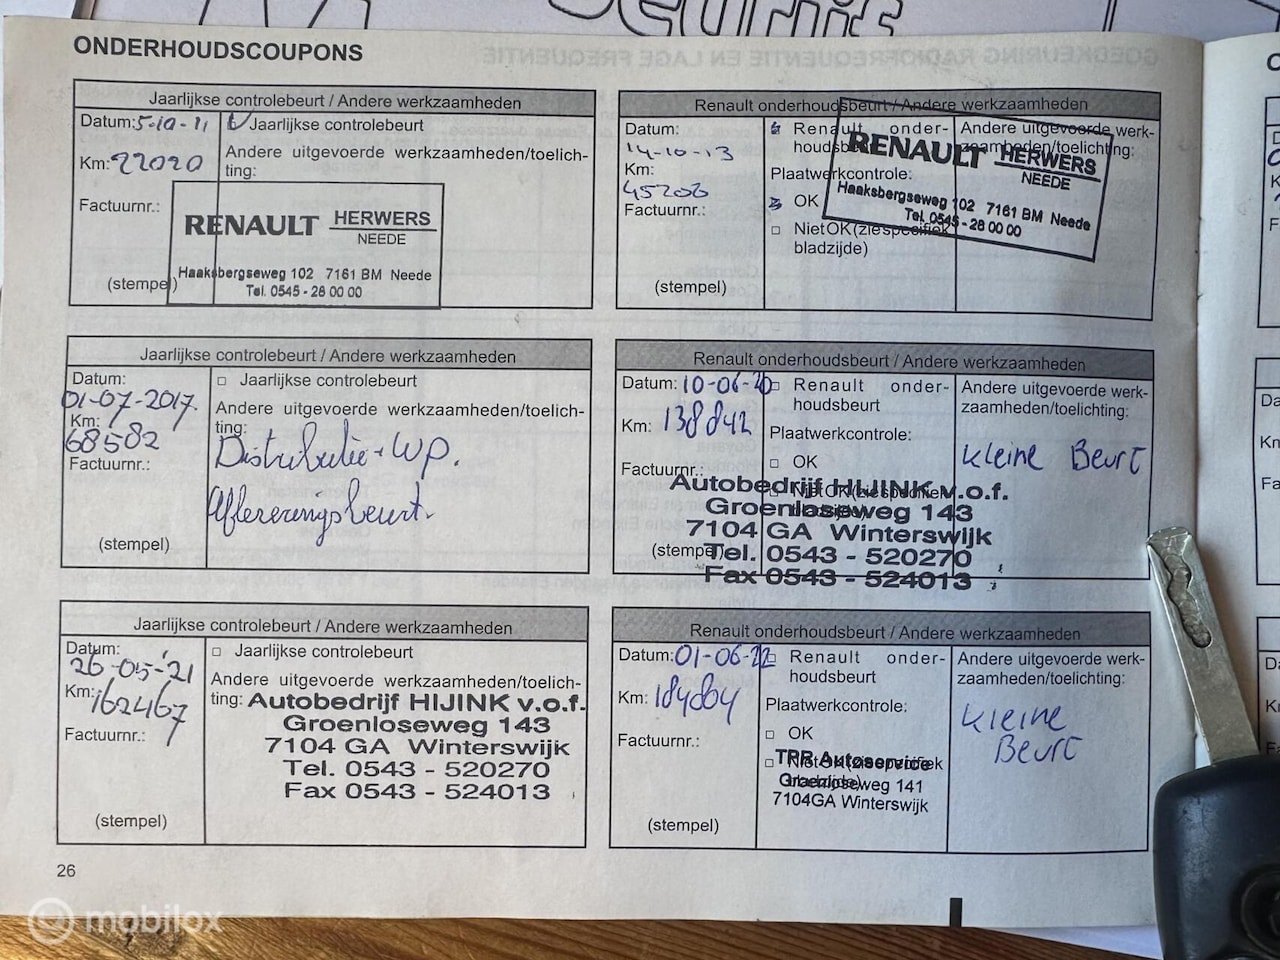 ONDERHOUDSCOUPONS
Jaarlijkse controlebeurt / Andere werkzaamheden
Datum: 5-10-11
Jaarlijkse controlebeurt
Km: 22020
Andere uitgevoerde werkzaamheden/toelich-
ting:
Factuurnr.:
RENAULT HERWERS
NEEDE
Haaksbergseweg 102 7161 BM Neede
Tel. 0545-28 00 00
(stempel)
Renault onderhoudsbeurt / Andere werkzaamheden
Datum:
14-10-13
Km:
45206
Factuurnr.:
(stempel)
Renault onder-
houdsbeurt
Plaatwerkcontrole:
OK
Niet OK (zie specifiek
bladzijde)
Andere uitgevoerde werk-
zaamheden/toelichting:
RENAULT HERWERS
NEEDE
Haaksbergseweg 102 7161 BM Neede
Tel. 0545-28 00 00
Jaarlijkse controlebeurt / Andere werkzaamheden
Datum:
01-07-2017.
Km:
68582
Factuurnr.:
(stempel)
Jaarlijkse controlebeurt
Andere uitgevoerde werkzaamheden/toelich-
ting:
Distributie + WP.
Afleveringsbeurt.
Renault onderhoudsbeurt / Andere werkzaamheden
Datum: 10-06-20
Km: 138842
Factuurnr.:
(stempel)
Renault onder-
houdsbeurt
Plaatwerkcontrole:
OK
Niet OK (zie specifiek
Andere uitgevoerde werk-
zaamheden/toelichting:
Kleine Beurt
Autobedrijf HIJINK v.o.f.
Groenloseweg 143
7104 GA Winterswijk
Tel. 0543 - 520270
Fax 0543 - 524013
Jaarlijkse controlebeurt / Andere werkzaamheden
Datum:
26-05-'21
Km: 162467
Factuurnr.:
(stempel)
Jaarlijkse controlebeurt
Andere uitgevoerde werkzaamheden/toelich-
ting:
Autobedrijf HIJINK v.o.f.
Groenloseweg 143
7104 GA Winterswijk
Tel. 0543 - 520270
Fax 0543 - 524013
Renault onderhoudsbeurt / Andere werkzaamheden
Datum: 01-06-22
Km: 184864
Factuurnr.:
(stempel)
Renault onder-
houdsbeurt
Plaatwerkcontrole:
OK
Niet OK (zie specifiek
bladzijde)
Andere uitgevoerde werk-
zaamheden/toelichting:
Kleine
Beurt
TPR Autoservice
Groenloseweg 141
7104GA Winterswijk
26
mobilox